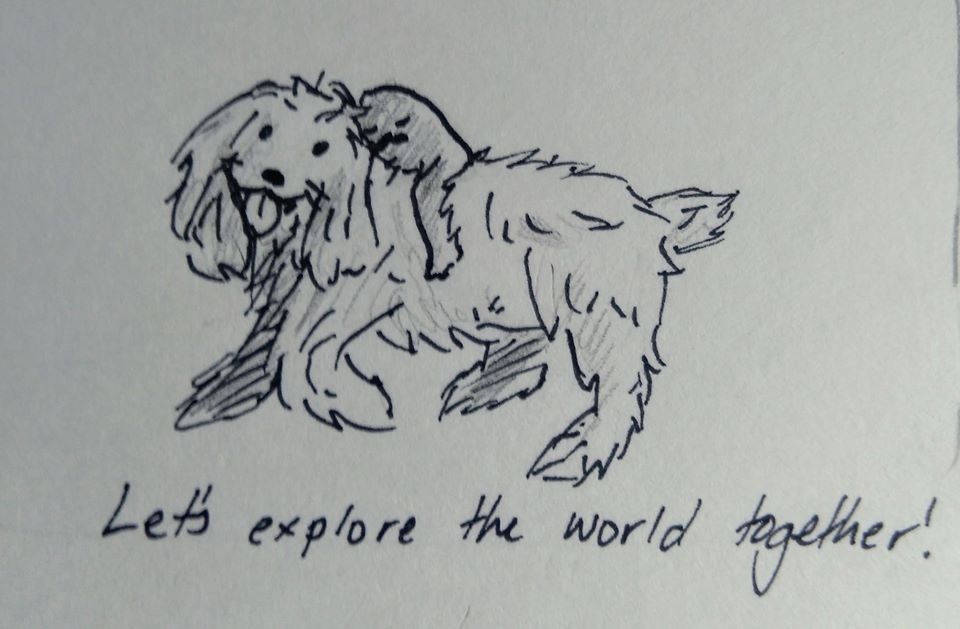 Let's explore the world together!